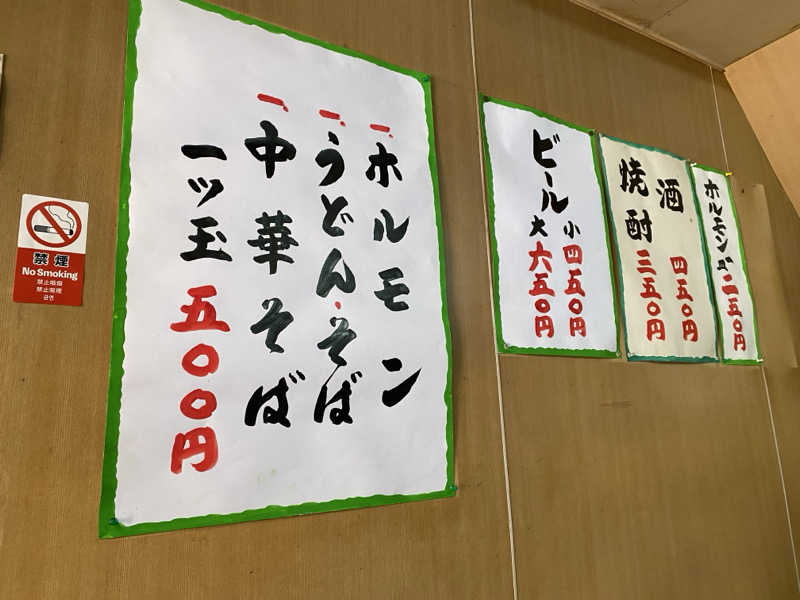 一、ホルモン
一、うどん・そば
一、中華そば
一ツ玉 五〇〇円
ビール 小 四五〇円
大 六五〇円
酒 四五〇円
焼酎 三五〇円
二五〇円
禁煙
No Smoking
禁止吸烟
禁止吸煙
금연